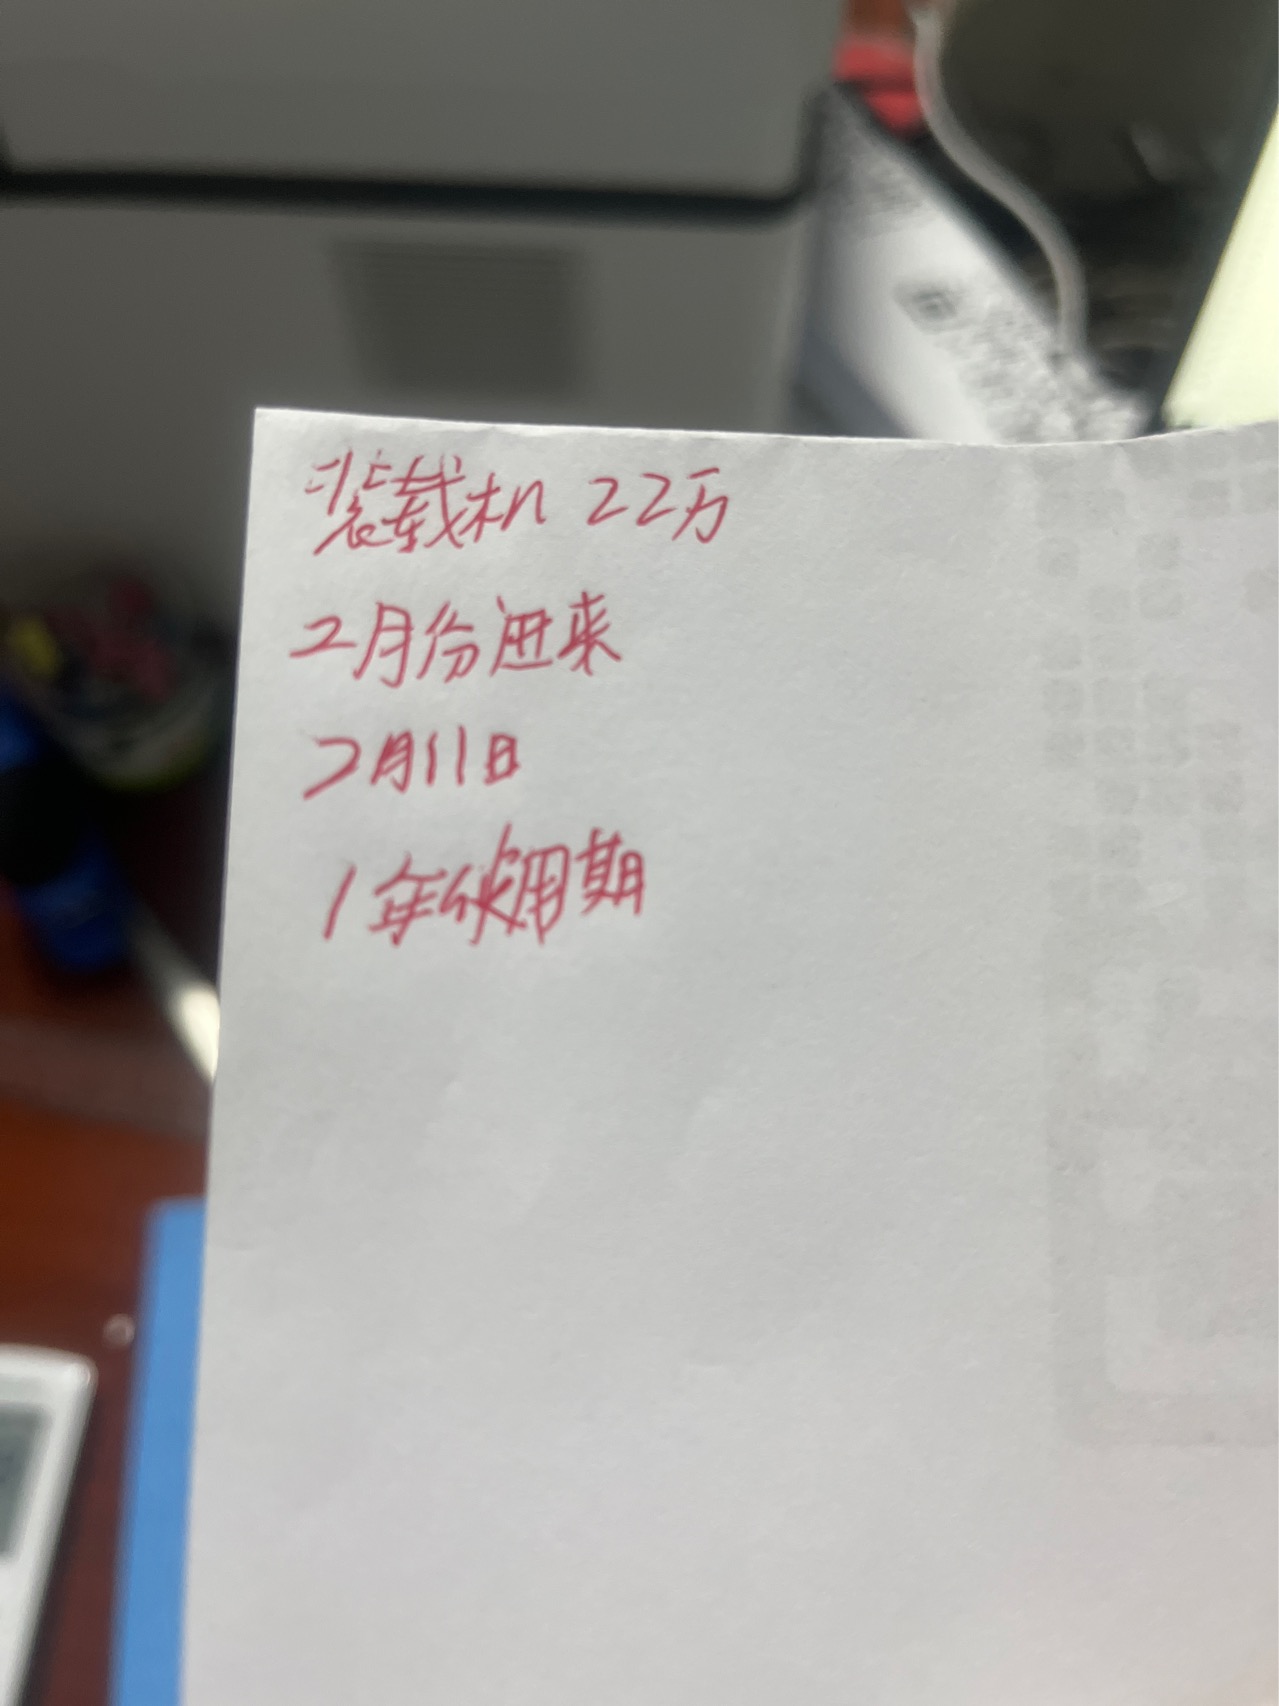 装载机 22万
2月份进来
2月11日
1年使用期